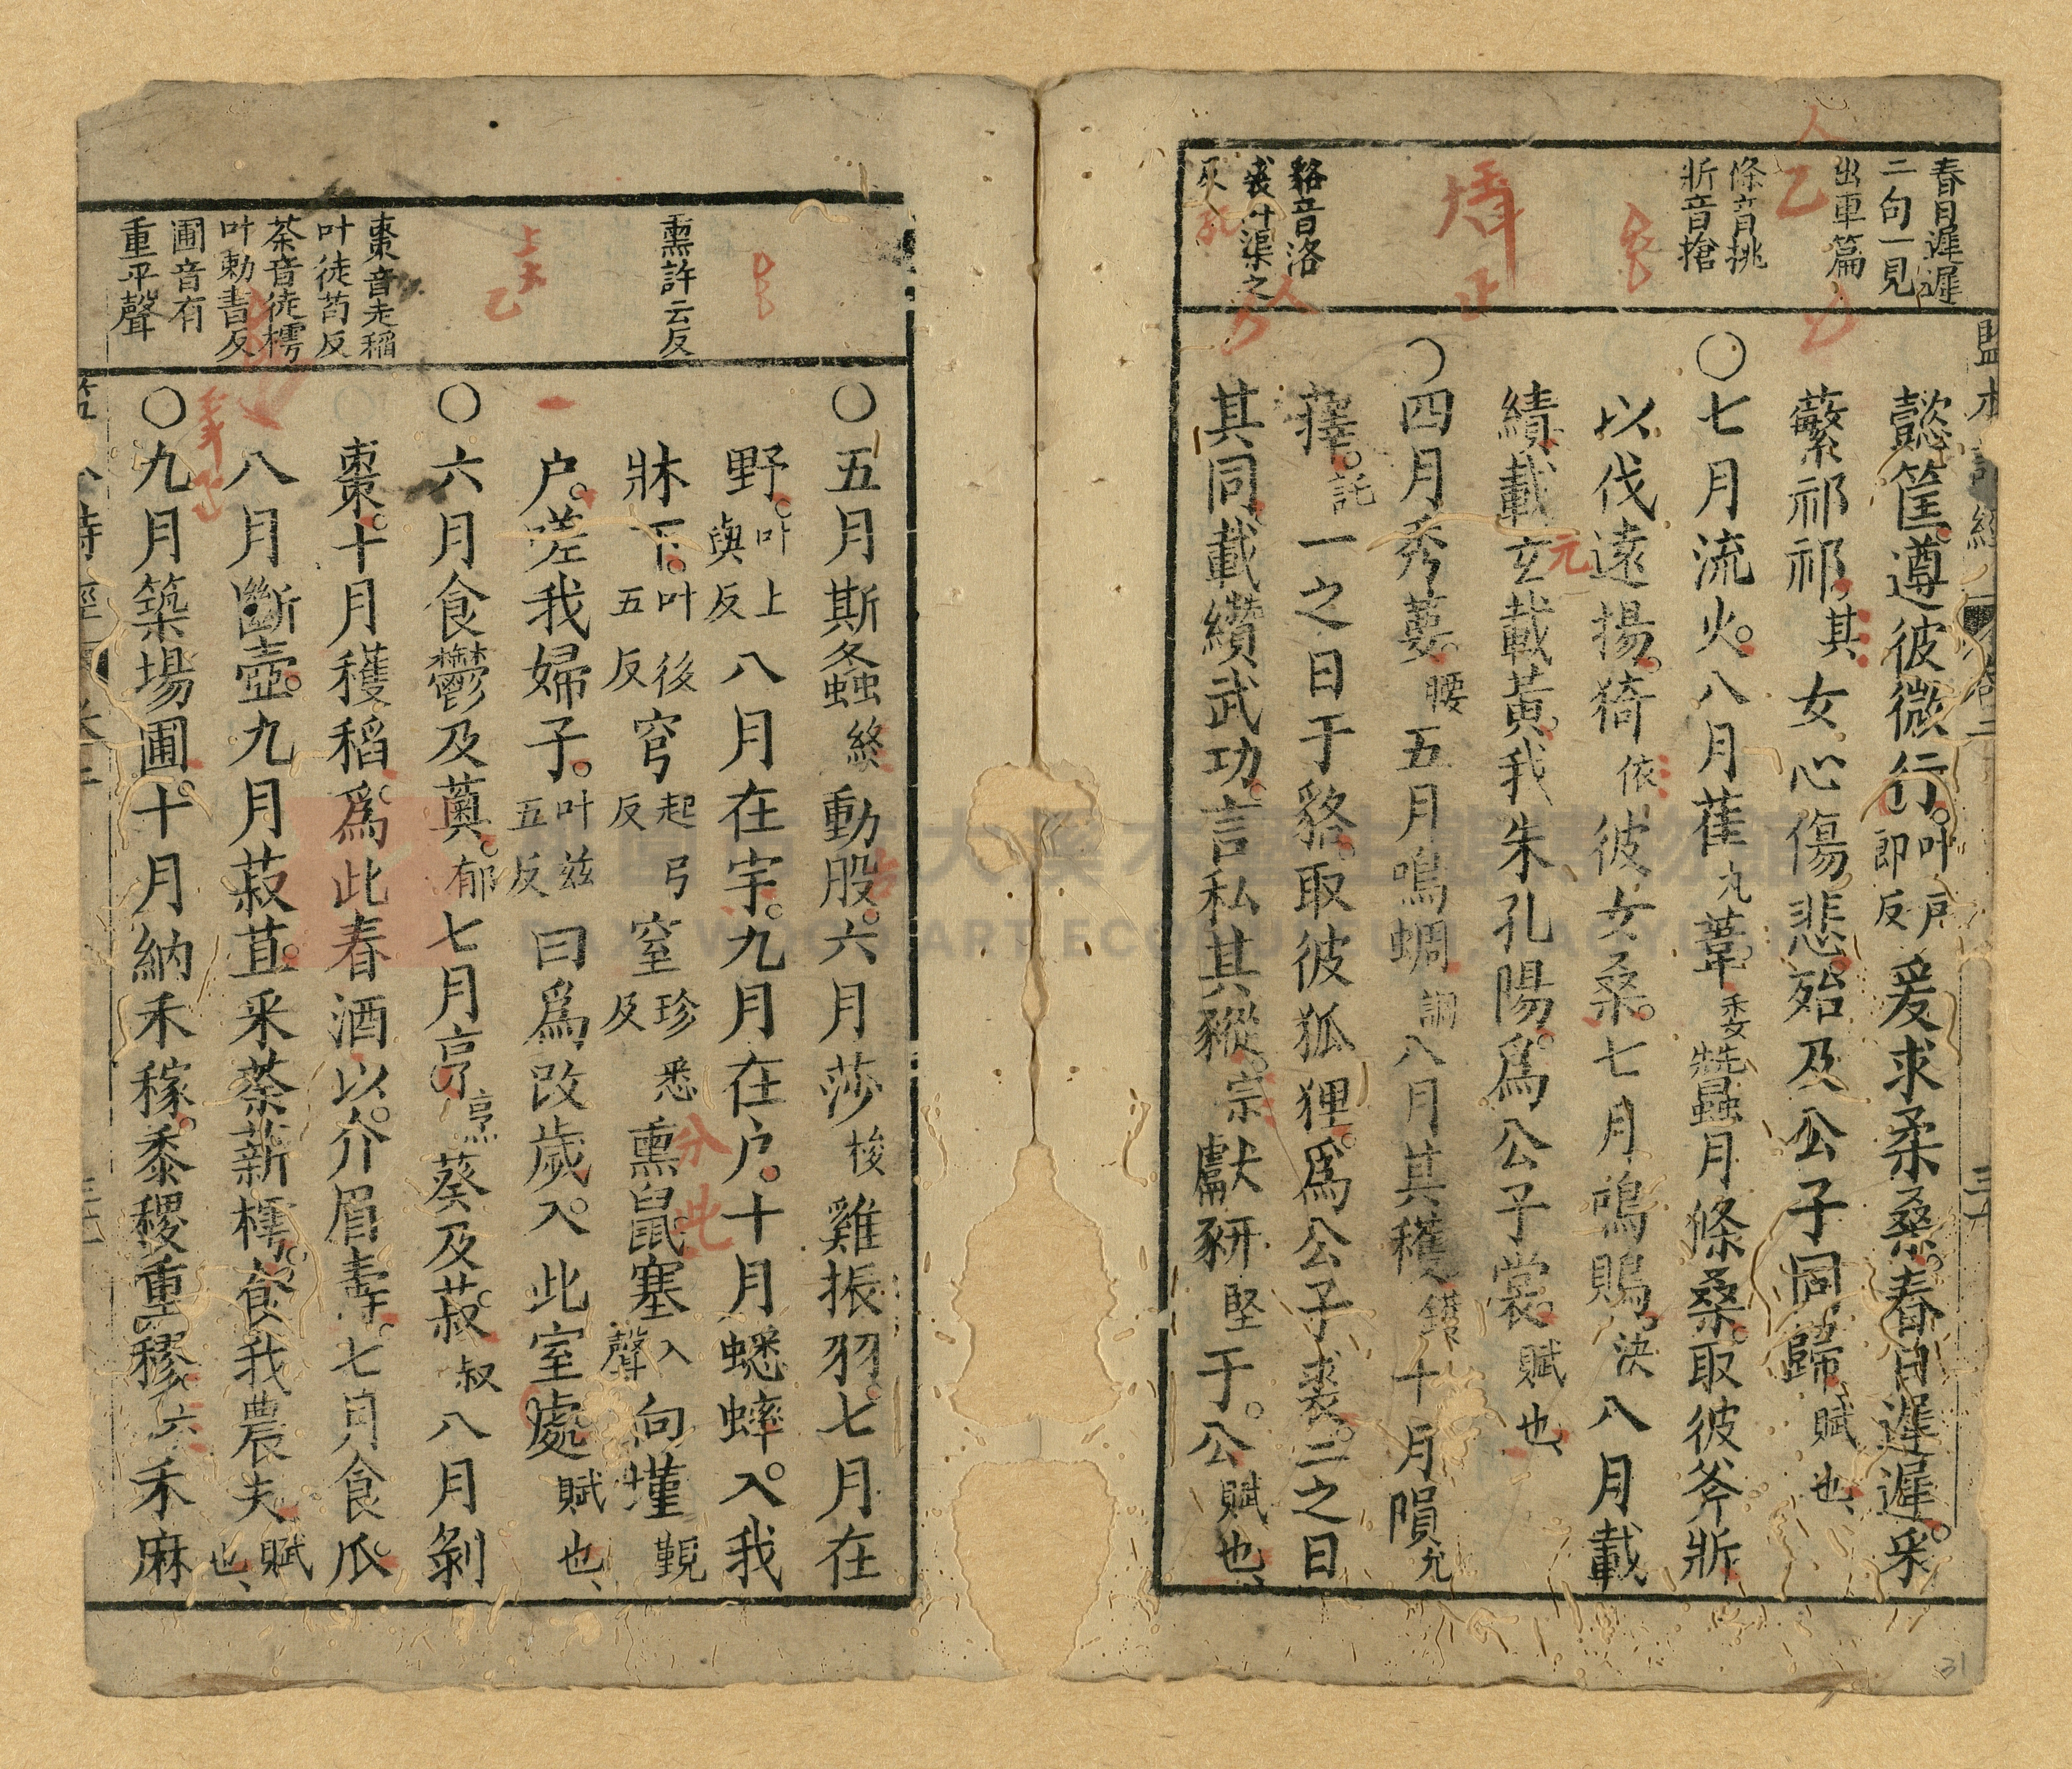 春日遲遲
二句一見
出車篇
條音挑
斨音搶
貉音洛
裘叶渠之
反
懿筐遵彼微行叶戶郎反爰求柔桑春日遲遲采
蘩祁祁其女心傷悲殆及公子同歸賦也
〇七月流火八月萑丸葦委蠶月條桑取彼斧斨
以伐遠揚猗依彼女桑七月鳴鵙決八月載
績載玄載黃我朱孔陽為公子裳賦也
〇四月秀葽腰五月鳴蜩調八月其穫鑊十月隕允
蘀託一之日于貉取彼狐狸為公子裘二之日
其同載纘武功言私其豵宗獻豜堅于公賦也
熏許云反
棗音走稻
叶徒苟反
荼音徒樗
叶勅書反
圃音有
重平聲
〇五月斯螽終動股六月莎梭雞振羽七月在
野叶上與反八月在宇九月在户十月蟋蟀入我
牀下叶後五反穹起弓反窒珍悉反熏鼠塞入聲向墐覲
户嗟我婦子叶兹五反曰為改歲入此室處賦也
〇六月食鬱及薁郁七月亨烹葵及菽叔八月剝
棗十月穫稻為此春酒以介眉壽七月食瓜
八月斷壺九月菽苴采荼薪樗食我農夫賦也
〇九月築場圃十月納禾稼黍稷重穋六禾麻